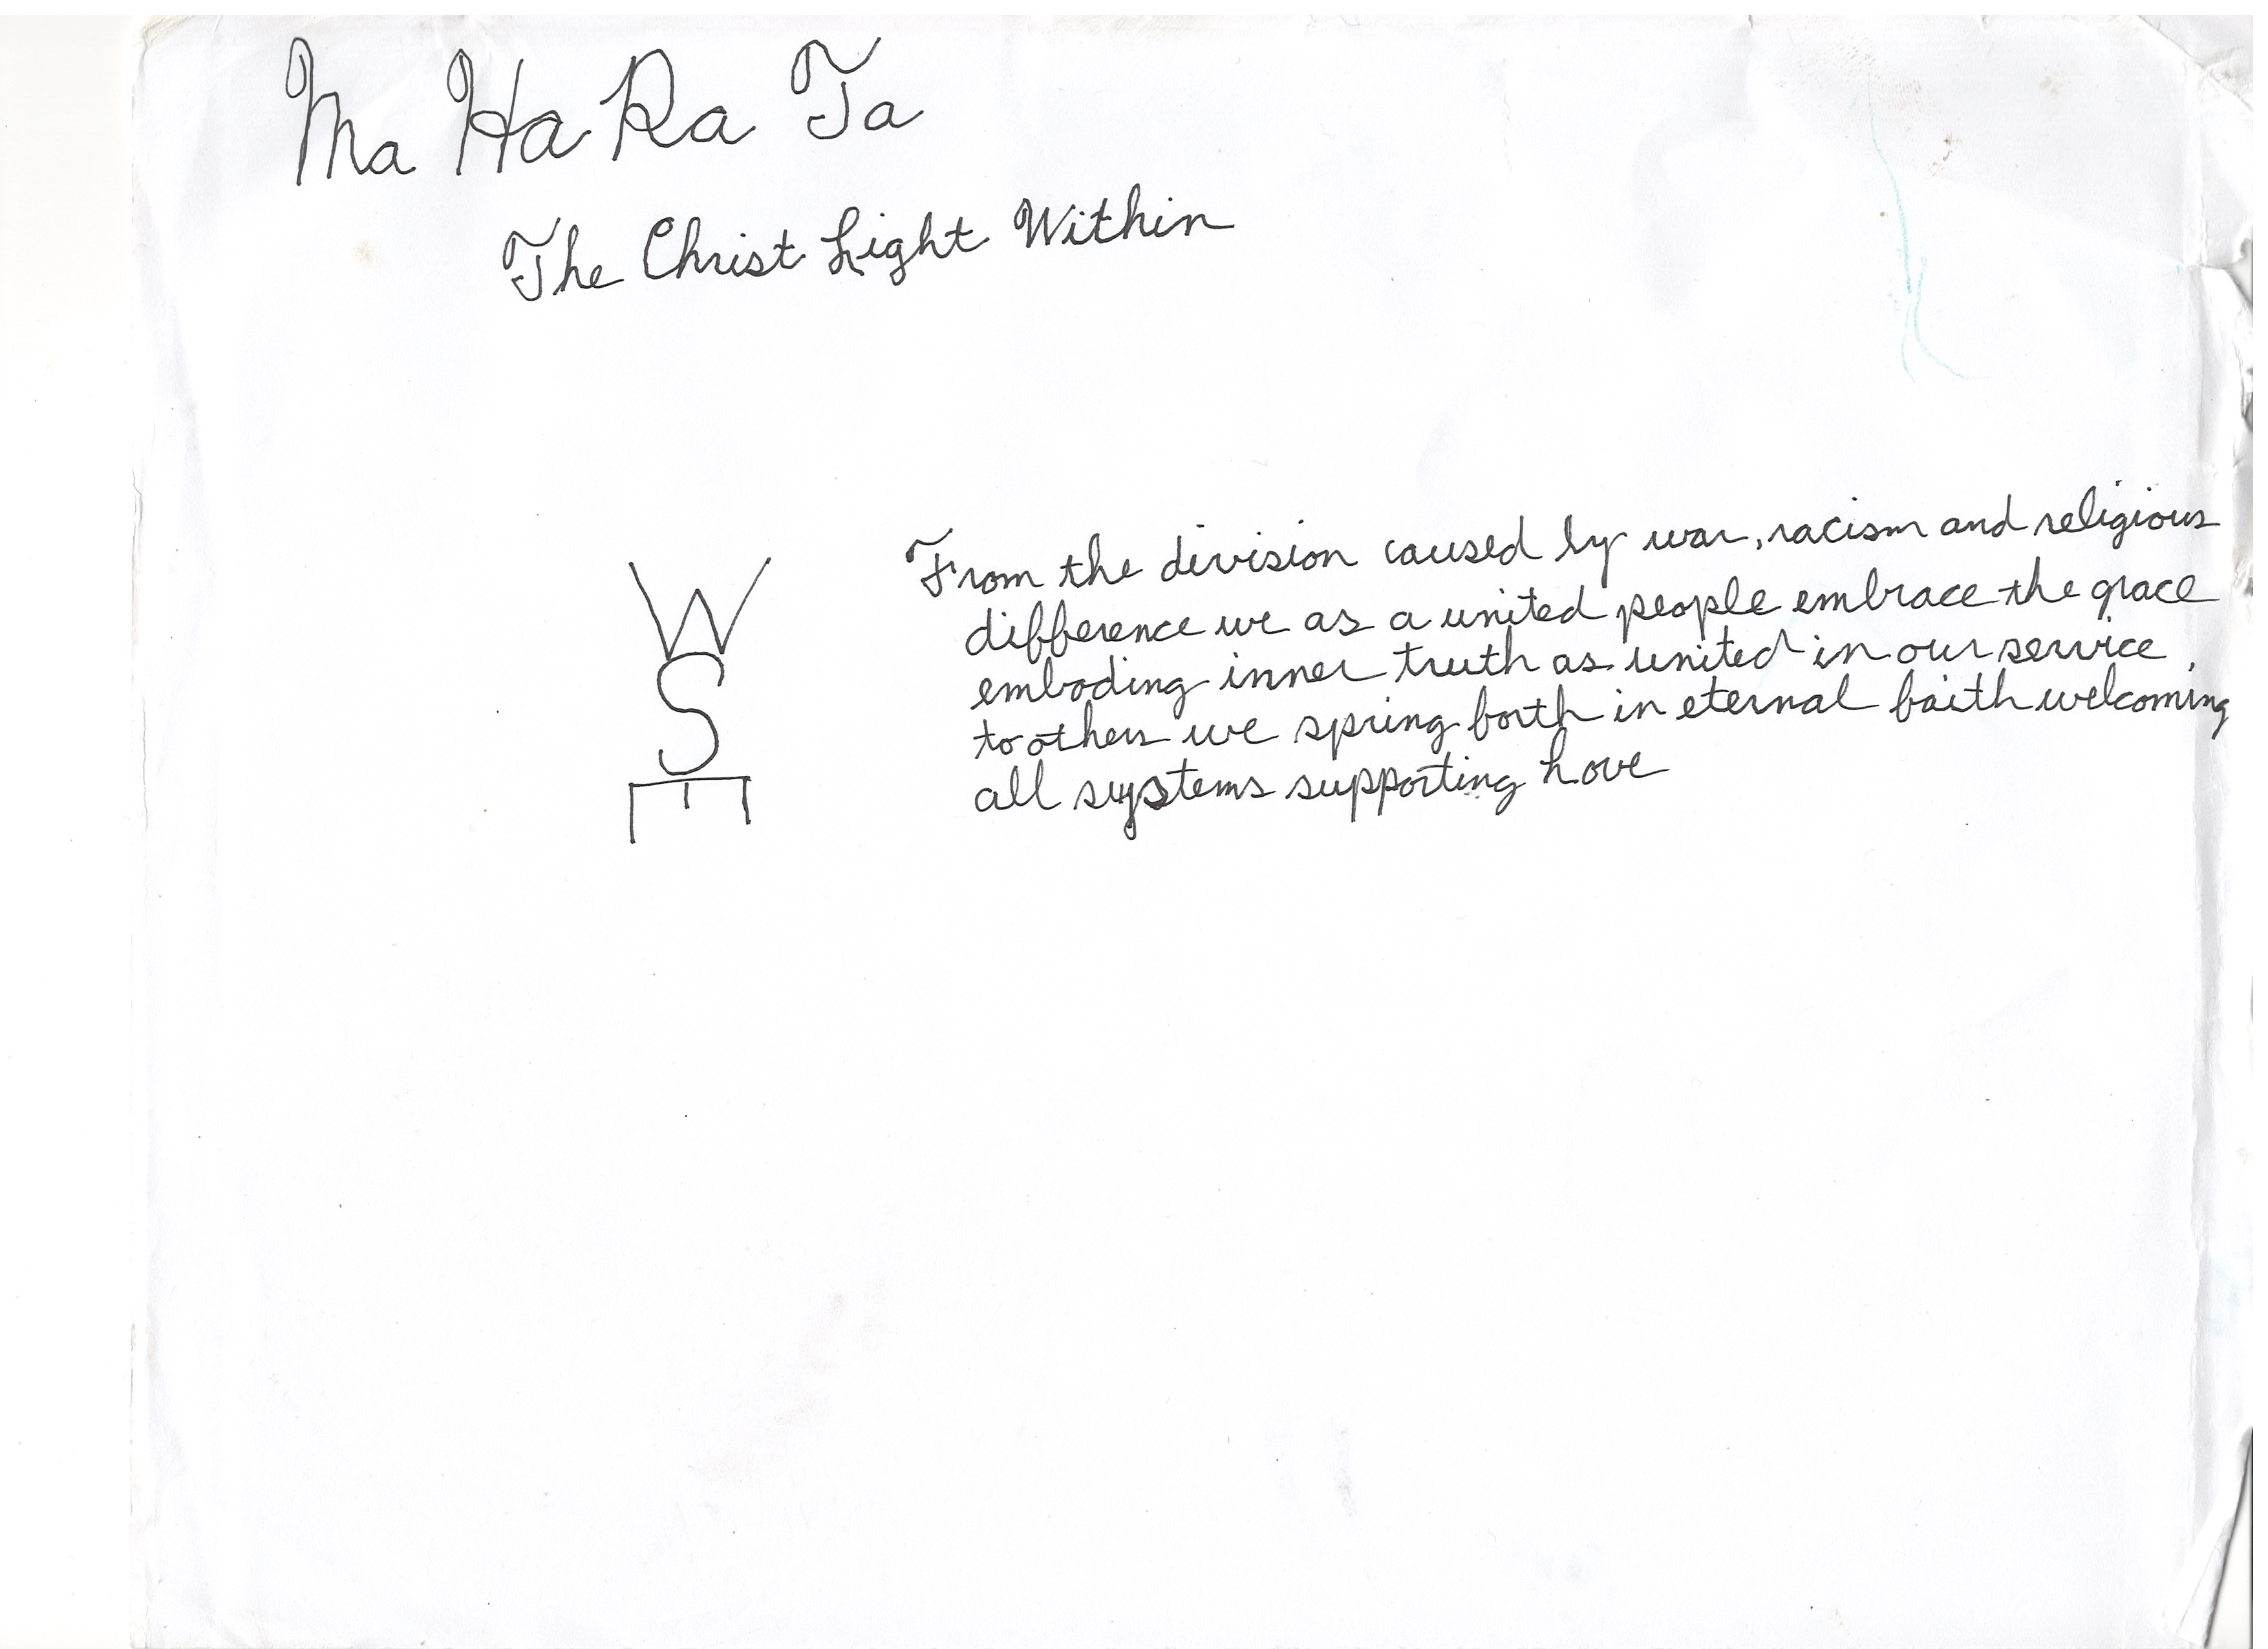 Ma Ha Ra Ta
The Christ Light Within
W
S
E
From the division caused by war, racism and religious
difference we as a united people embrace the grace
emboding inner truth as united in our service,
to others we spring forth in eternal faith welcoming
all systems supporting Love